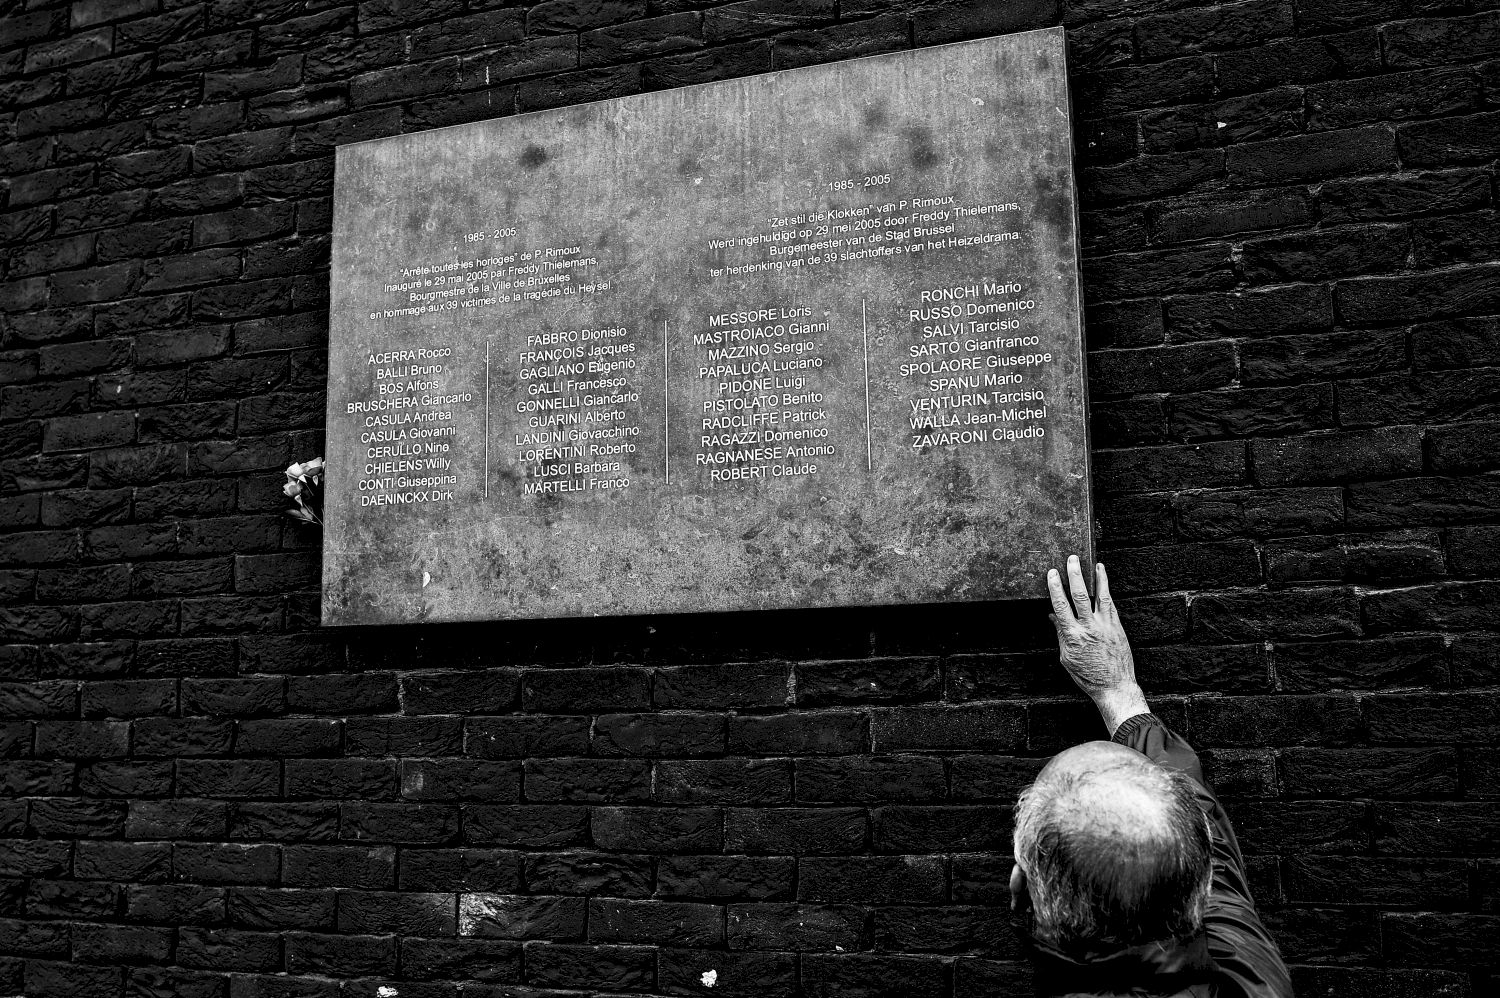 1985 - 2005
"Arrête toutes les horloges" de P. Rimoux
Inauguré le 29 mai 2005 par Freddy Thielemans,
Bourgmestre de la Ville de Bruxelles
en hommage aux 39 victimes de la tragédie du Heysel.
1985 - 2005
"Zet stil die Klokken" van P. Rimoux
Werd ingehuldigd op 29 mei 2005 door Freddy Thielemans,
Burgemeester van de Stad Brussel
ter herdenking van de 39 slachtoffers van het Heizeldrama.
ACERRA Rocco
BALLI Bruno
BOS Alfons
BRUSCHERA Giancarlo
CASULA Andrea
CASULA Giovanni
CERULLO Nine
CHIELENS Willy
CONTI Giuseppina
DAENINCKX Dirk
FABBRO Dionisio
FRANÇOIS Jacques
GAGLIANO Eugenio
GALLI Francesco
GONNELLI Giancarlo
GUARINI Alberto
LANDINI Giovacchino
LORENTINI Roberto
LUSCI Barbara
MARTELLI Franco
MESSORE Loris
MASTROIACO Gianni
MAZZINO Sergio
PAPALUCA Luciano
PIDONE Luigi
PISTOLATO Benito
RADCLIFFE Patrick
RAGAZZI Domenico
RAGNANESE Antonio
ROBERT Claude
RONCHI Mario
RUSSO Domenico
SALVI Tarcisio
SARTO Gianfranco
SPOLAORE Giuseppe
SPANU Mario
VENTURIN Tarcisio
WALLA Jean-Michel
ZAVARONI Claudio